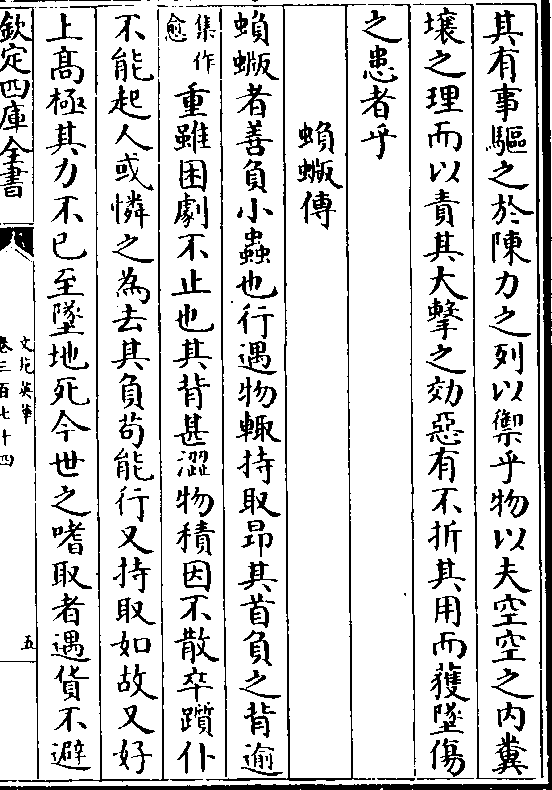 其有事驅之於陳力之列以禦乎物以夫空空之内糞
壤之理而以責其大擊之効惡有不折其用而獲墜傷
之患者乎
蝜蝂傳
蝜蝂者善負小蟲也行遇物輙持取昂其首負之背逾
集作愈重雖困劇不止也其背甚澀物積因不散卒躓仆
不能起人或憐之為去其負苟能行又持取如故又好
上髙極其力不已至墜地死今世之嗜取者遇貨不避
欽定四庫全書
文苑英華
卷三百七十四
五